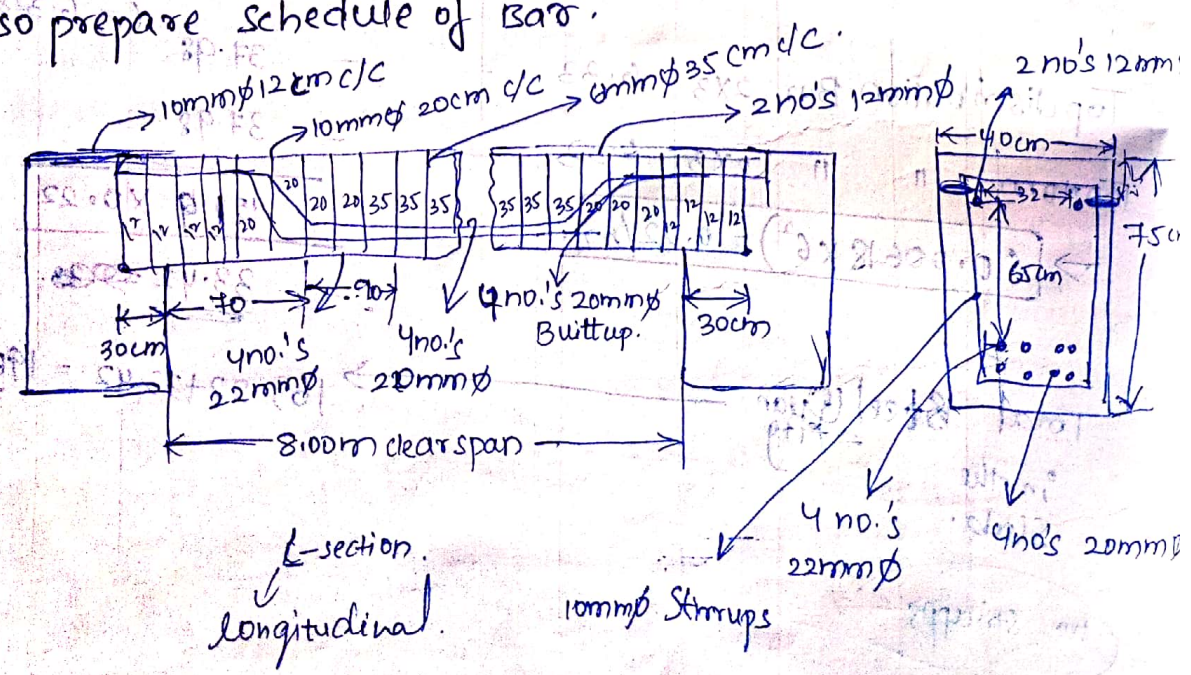 so prepare schedule of Bar.
10mmø12cm c/c
10mmø 20cm c/c
6mmø35cmc/c.
2no's 12mmø
2no's 12mm
40cm
32
75cm
65cm
20
20 20 35 35 35
35 35 35 20 20 20
12 12 12 12 20
12 12 12 12
30cm
70
90
4no.'s
22mmø
4no.'s
20mmø
4no.'s 20mmø
Buittup.
30cm
8.00m clear span
L-section.
longitudinal.
10mmø Stirrups
4no.'s
22mmø
4no's 20mmø